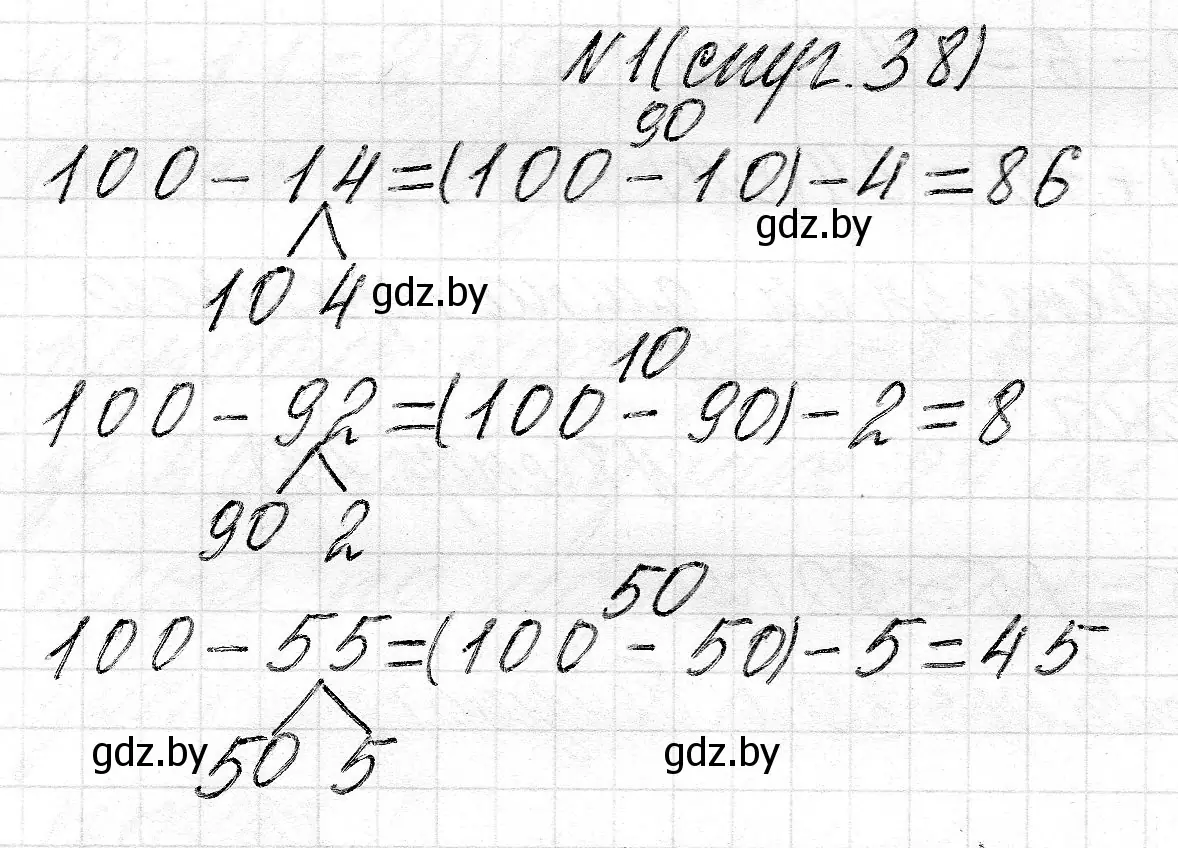 N1(стр. 38)
90
100 - 14 = (100 - 10) - 4 = 86
gdz.by
10 4 gdz.by
10
100 - 92 = (100 - 90) - 2 = 8
90 2
50
100 - 55 = (100 - 50) - 5 = 45
gdz.by 50 5 gdz.by